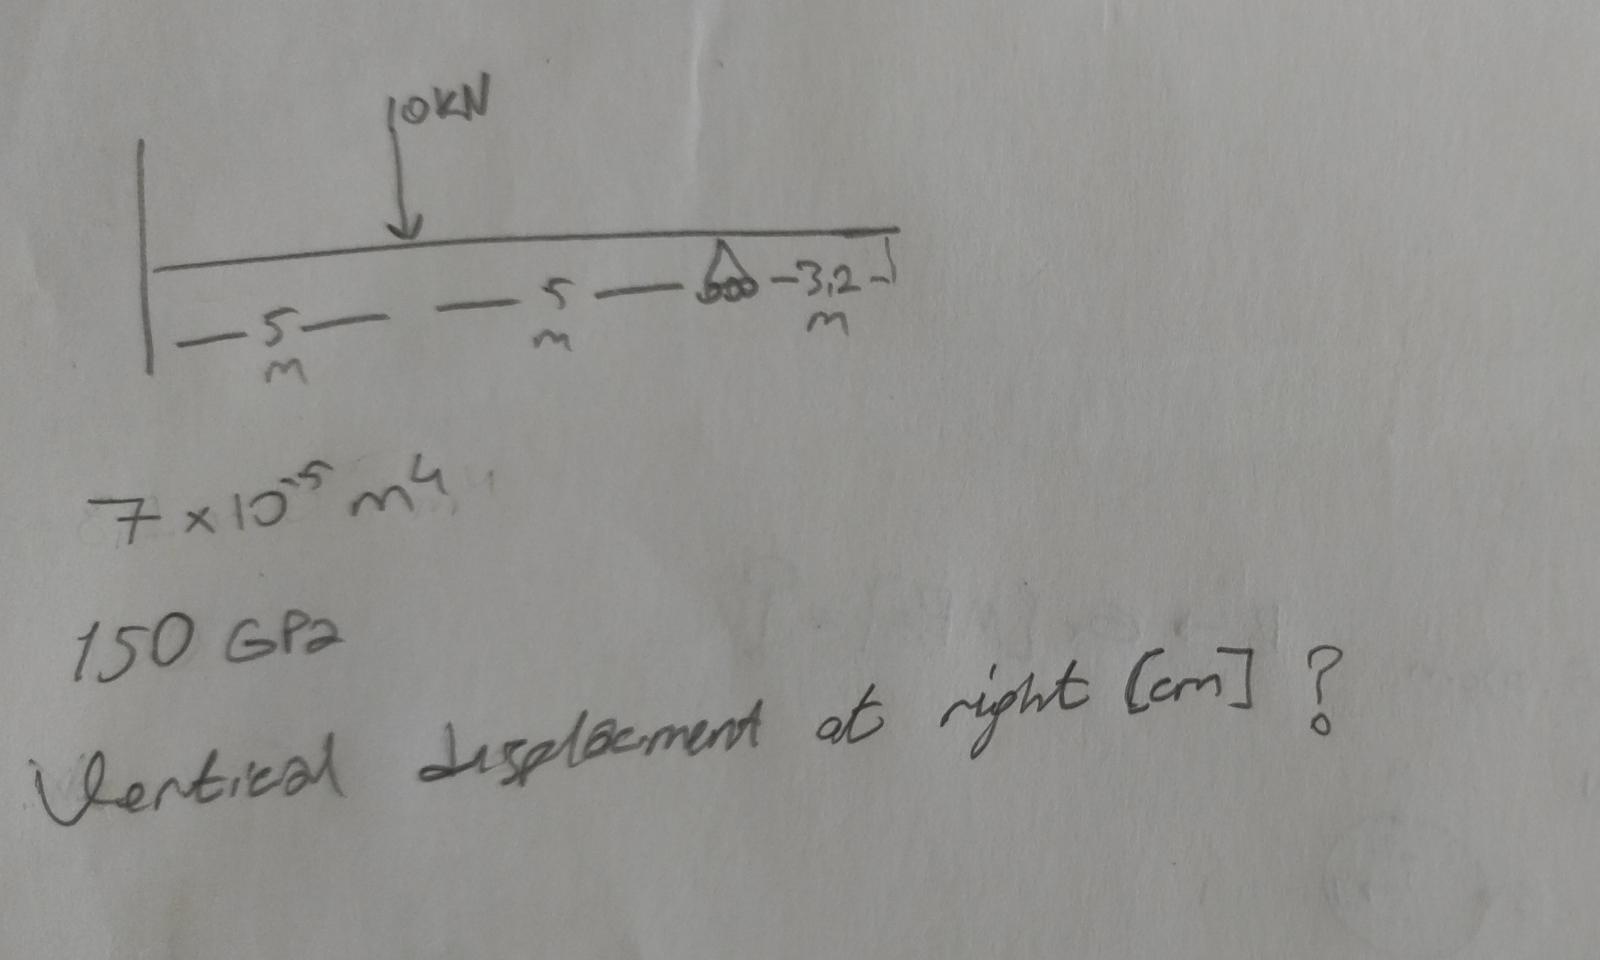 10KN
5 m
5 m
3,2 m
7 x 10⁻⁵ m⁴
150 GPa
Vertical displacment at right [cm] ?